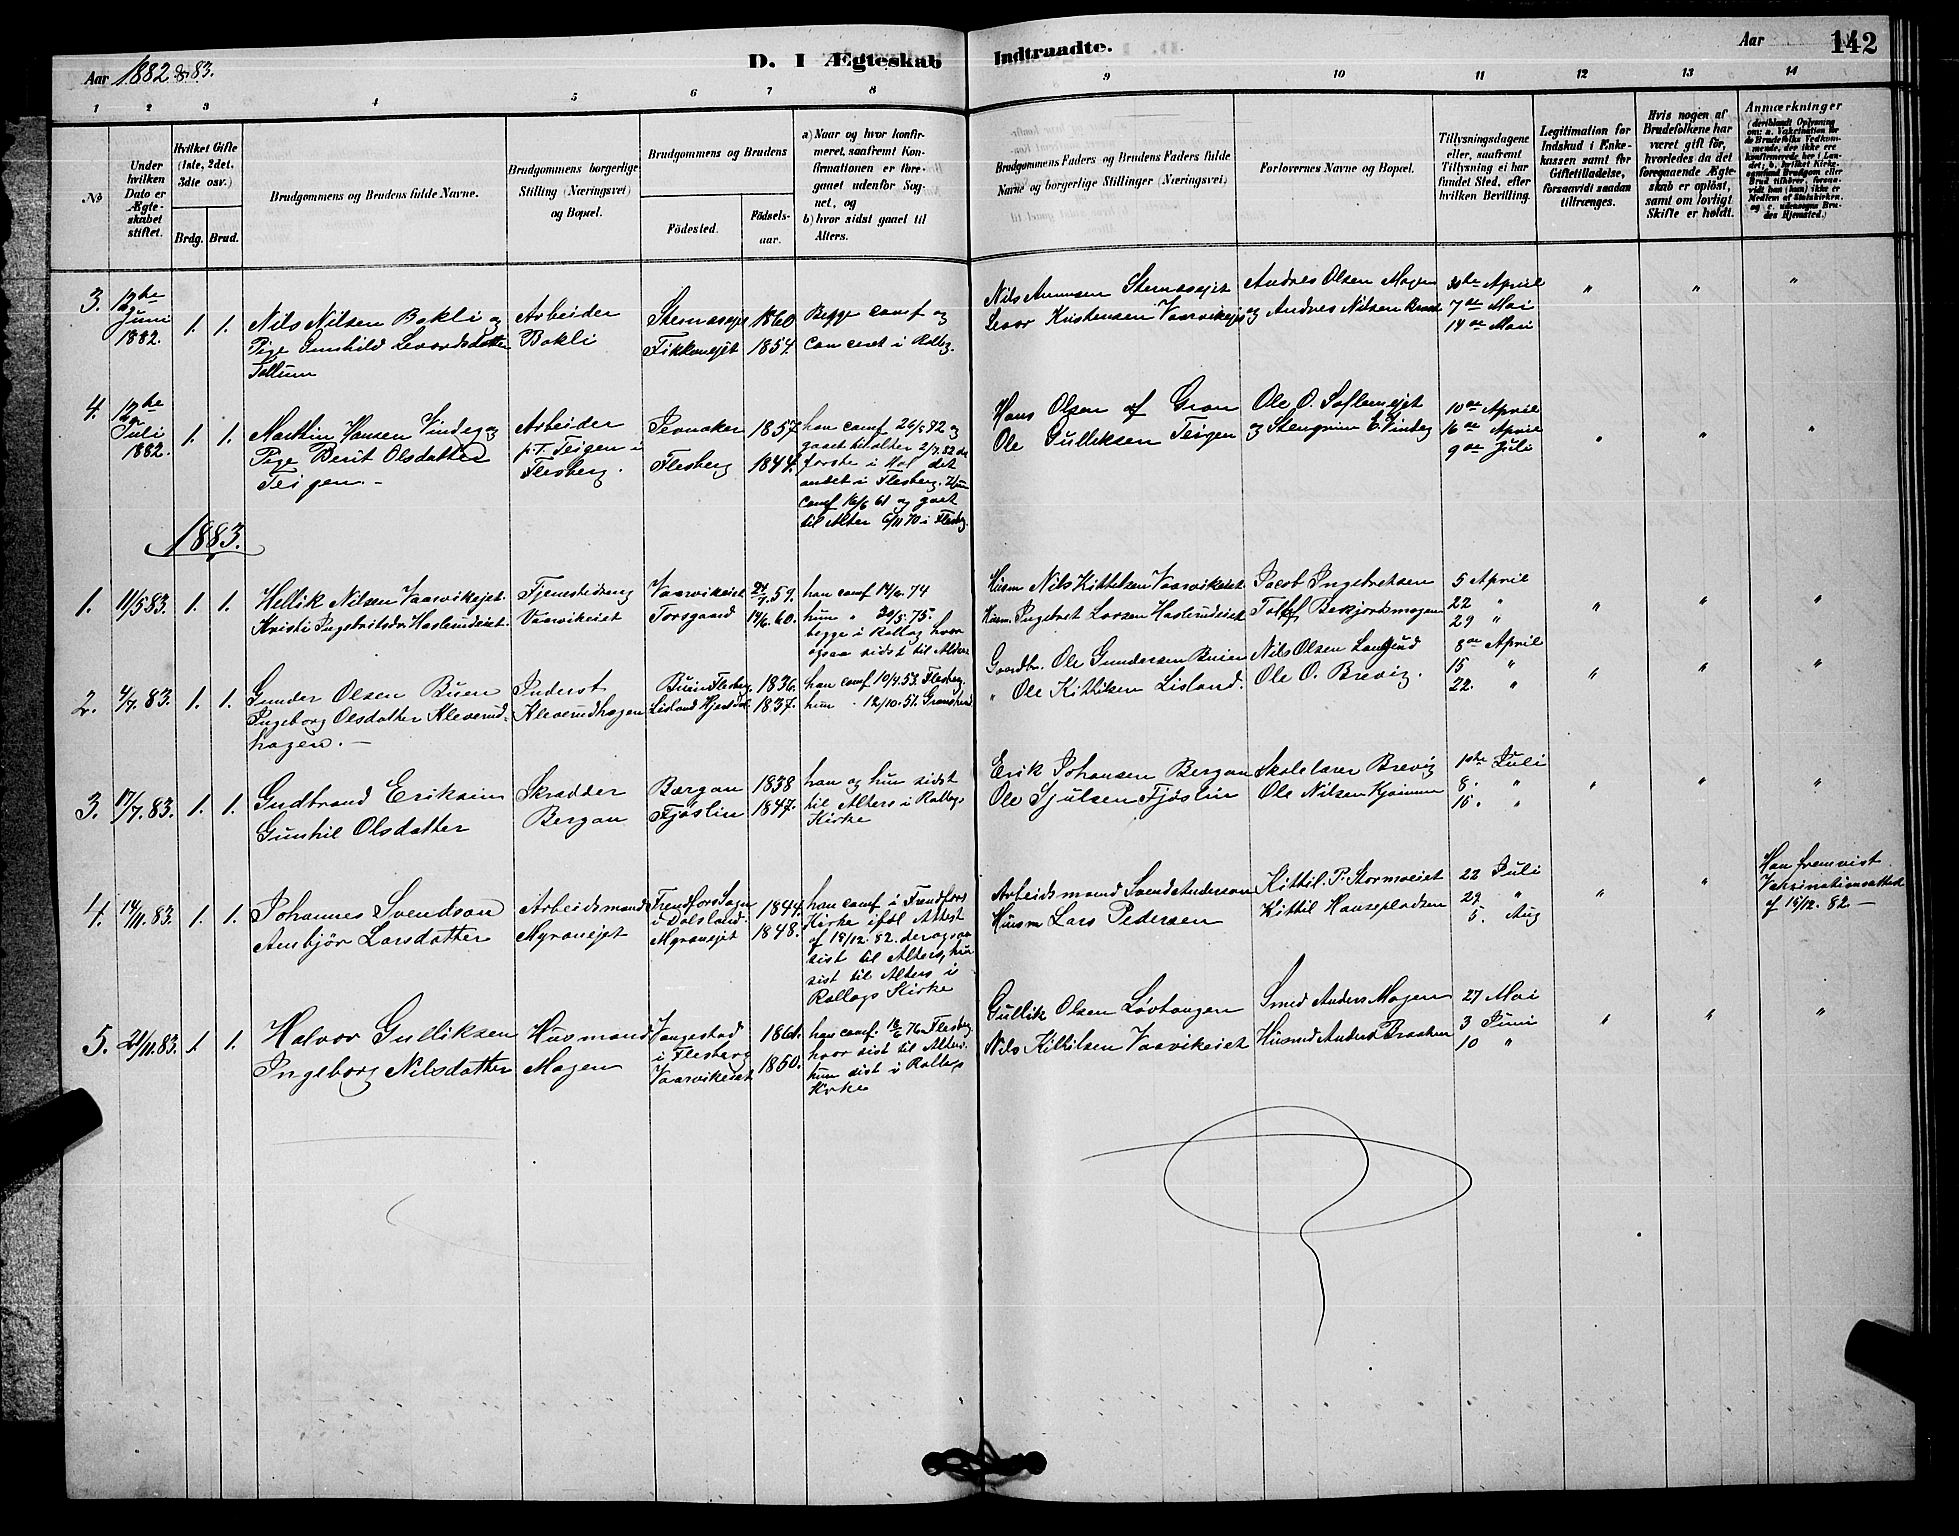 Aar 1882 & 83.
D. I Ægteskab
Indtraadte.
Aar
142
1 2 3 4 5 6 7 8 9 10 11 12 13 14
No
Under
hvilken
Dato er
Ægte-
skabet
stiftet.
Hvilket Gifte
(1ste, 2det,
3die osv.)
Brdg. Brud.
Brudgommens og Brudens fulde Navne.
Brudgommens borgerlige
Stilling (Næringsvei)
og Bopæl.
Brudgommens og Brudens
Födested.
Födsels-
aar.
a) Naar og hvor konfir-
meret, saafremt Kon-
firmationen er fore-
gaaet udenfor Sog-
net, og
b) hvor sidst gaaet til
Alters.
Brudgommens Faders og Brudens Faders fulde
Navne og borgerlige Stillinger (Næringsvei)
Forlovernes Navne og Bopæl.
Tillysningsdagene
eller, saafremt
Tillysning ei har
fundet Sted, efter
hvilken Bevilling.
Legitimation for
Indskud i Enke-
kassen samt for
Giftetilladelse,
forsaavidt saadan
tiltrænges.
Hvis nogen af
Brudefolkene har
været gift før,
hvorledes da det
foregaaende Ægte-
skab er oplöst,
samt om lovligt
Skifte er holdt.
Anmærkninger
(deriblandt Oplysning
om: a. Vakcination for
de Brudefolks Vedkom-
mende, der ikke ere
konfirmerede her i Lan-
det; b. hvilket Kirke-
samfund Brudgom eller
Brud tilhörer, forsaa-
vidt han (hun) ikke er
Medlem af Statskirken,
og c. udensogns Bru-
des Hjemsted.)
3. 12te Juni 1882. 1. 1.
Nils Nilsen Bakli og
Pige Gunhild Levordsdatter
Tollum
Arbeider
Bakli
1860
1854.
Begge conf og
i Rollag.
Nils
Levor Kristensen
Andres Olsen Mogen
og Andres Nilsen
30te April
7de Mai
14de Mai
" " "
4. 12te Juli 1882. 1. 1.
Marthin Hansen Vindeg og
Pige Berit Olsdatter
Teigen. -
Arbeider
p.T. Teigen i
Flesberg.
Jevnaker
Flesberg
1857.
1844.
han conf 26/5 72 og
gaaet til alter 2/7 82 det
forste i Hol det
andet i Flesberg. Hun
conf 16/6 61 og gaaet
til Alter 6/11 70 i Flesbg.
Hans Olsen af Gran
Ole Gulliksen Teigen
Ole O.
og Stengrim E Vindeg
10de April
16de April
9de Juli
" " "
1883.
1. 11/5 83. 1. 1.
Hellik Nilsen Vaarvikejet.
Kristi Ingebritsdr. Haslerudeiet.
Tjenestedreng
Vaarvikeiet
Vaarvikeiet
Torsgaard
57.
60.
han conf 14/6. 74
hun " 20/5. 75.
begge i Rollag hvor
ogsaa sidst til Alders
Husm Nils Kittilsen Vaarvikeiet
Husm. Ingebret Larsen Haslerudeiet
Jacob Ingebretsen
5 April
22 "
29 "
" " "
2. 4/7. 83. 1. 1.
Gunder Olsen Buen
Ingeborg Olsdatter Kleverud-
hagen. -
Inderst
Kleverudhagen
Buin Flesberg.
Lisland
1836.
1837.
han conf 10/4. 53. Flesberg.
hun " 12/10. 51.
Gaardbr. Ole Gundersen Buien
" Ole Kittilsen Lisland.
Nils Olsen
Ole O. Brevig.
8de April
15 "
22. "
" " "
3. 17/7. 83. 1. 1.
Gudbrand Eriksen
Gunhil Olsdatter
Skrædder
Bergan
Bergan
Fjøslin
1838
1847.
han og hun sidst
til Alters i Rollags
Kirke
Erik Johansen Bergan
Ole Sjulsen Fjøslin
Skolelærer Brevig
Ole Nilsen
1ste Juli
8. "
15. "
" " "
4. 14/11. 83. 1. 1.
Johannes Svendson
Ambjör Larsdatter
Arbeidsmand
Myranejet
Frendfors Sogn
i Dalsland.
Myranejet
1844.
1848.
han conf i Frendfors
Kirke iføl Attest
af 18/12. 82. der ogsaa
sist til Alters, hun
sist til Alters i
Rollags Kirke
Arbeidsmand Svend Anderson
Husm Lars Pedersen
Kittil. P. Stormoeiet
Kittil Hansepladsen
22 Juli
29 "
5. Aug
" "
Han fremvist
Vaksinationsattest
af 18/12. 82. -
5. 21/11. 83. 1. 1.
Halvor Gulliksen
Ingeborg Nilsdatter
Husmand
Mogen
Vangestad
i Flesberg
Vaarvikeiet
1861.
1850.
han conf. 76 Flesberg
hvor sist til Alters.
hun sist i Rollags
Kirke
Gullik Olsen Løvtangen
Nils Kittilsen Vaavikeiet
Smed Anders Mogen
Husmd Anders Braaten
27 Mai
3 Juni
10 "
" " "